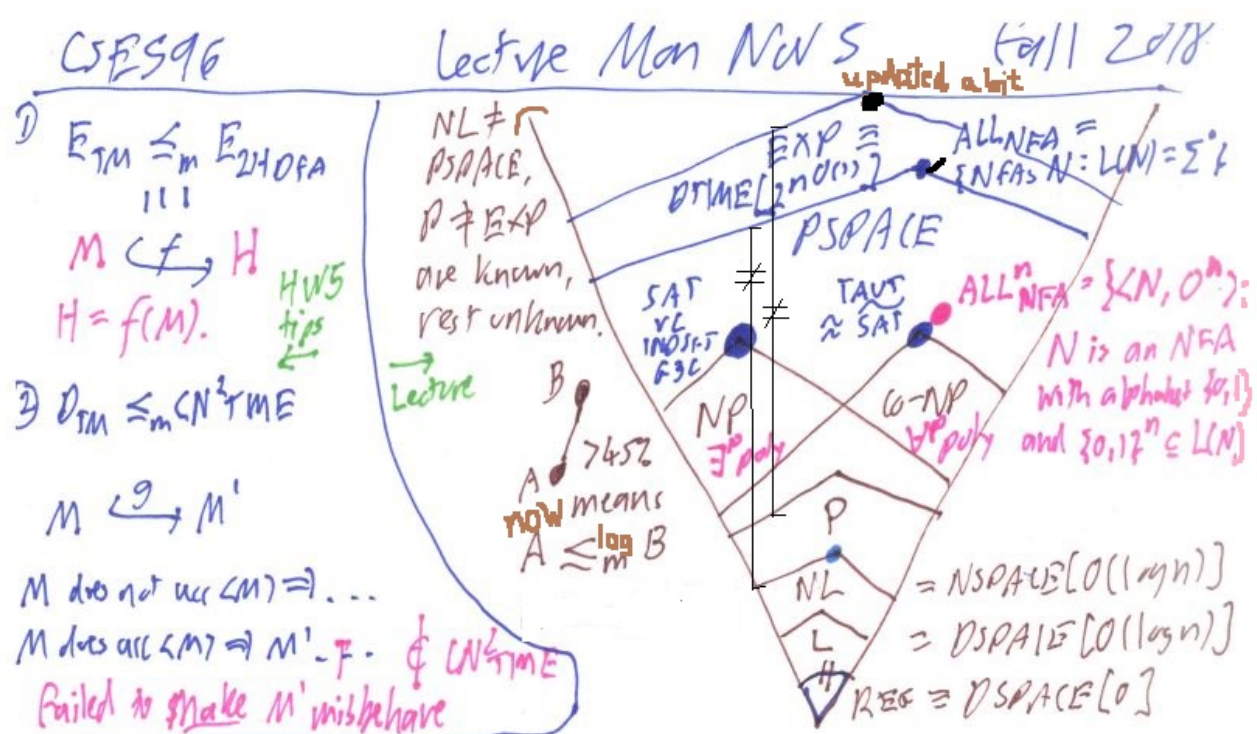 CSE596 Lecture Mon Nov 5 Fall 2018
updated a bit
1) E_TM ≤_m E_2HDFA
|||
M f H
H = f(M).
HW5
tips
←
2) D_TM ≤_m CN²TIME
M g M'
M does not acc <M> ⇒ ...
M does acc <M> ⇒ M' ... ∉ CN²TIME
failed to make M' misbehave
→
Lecture
NL ≠
PSPACE,
P ≠ EXP
are known,
rest unknown.
B
A >45°
now means
A ≤_m^log B
EXP ≡
DTIME[2^n^O(1)]
ALL_NFA =
{NFAs N: L(N) = Σ*}
PSPACE
SAT
G3C
TAUT
≈ SAT
ALL^n_NFA = {<N, 0^n>:
N is an NFA
with alphabet {0,1}
and {0,1}^n ⊆ L(N)}
NP
∃^p poly
co-NP
∀^p poly
P
NL = NSPACE[O(log n)]
L = DSPACE[O(log n)]
≠
REG = DSPACE[0]